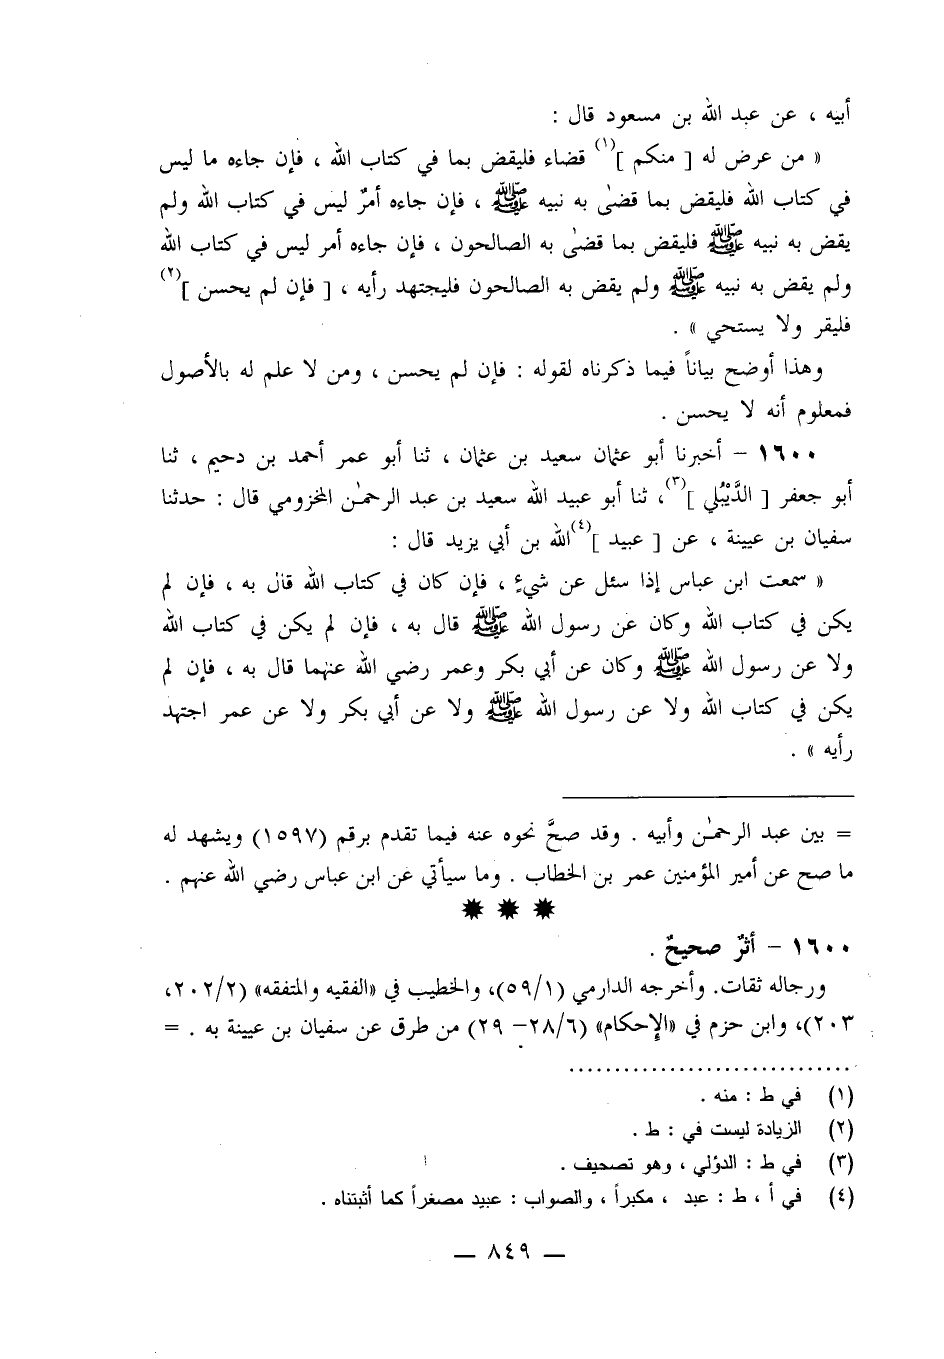 أبيه ، عن عبد الله بن مسعود قال :
« من عرض له [ منكم ](١) قضاء فليقض بما في كتاب الله ، فإن جاءه ما ليس
في كتاب الله فليقض بما قضىٰ به نبيه ﷺ ، فإن جاءه أمرٌ ليس في كتاب الله ولم
يقض به نبيه ﷺ فليقض بما قضىٰ به الصالحون ، فإن جاءه أمر ليس في كتاب الله
ولم يقض به نبيه ﷺ ولم يقض به الصالحون فليجتهد رأيه ، [ فإن لم يحسن ](٢)
فليقر ولا يستحي » .
وهذا أوضح بياناً فيما ذكرناه لقوله : فإن لم يحسن ، ومن لا علم له بالأصول
فمعلوم أنه لا يحسن .
١٦٠٠ – أخبرنا أبو عثمان سعيد بن عثمان ، ثنا أبو عمر أحمد بن دحيم ، ثنا
أبو جعفر [ الدَّيْبُلي ](٣)، ثنا أبو عبيد الله سعيد بن عبد الرحمٰن المخزومي قال : حدثنا
سفيان بن عيينة ، عن [ عبيد ](٤)الله بن أبي يزيد قال :
« سمعت ابن عباس إذا سئل عن شيءٍ ، فإن كان في كتاب الله قال به ، فإن لم
يكن في كتاب الله وكان عن رسول الله ﷺ قال به ، فإن لم يكن في كتاب الله
ولا عن رسول الله ﷺ وكان عن أبي بكر وعمر رضي الله عنهما قال به ، فإن لم
يكن في كتاب الله ولا عن رسول الله ﷺ ولا عن أبي بكر ولا عن عمر اجتهد
رأيه » .
= بين عبد الرحمٰن وأبيه . وقد صحَّ نحوه عنه فيما تقدم برقم (١٥٩٧) ويشهد له
ما صح عن أمير المؤمنين عمر بن الخطاب . وما سيأتي عن ابن عباس رضي الله عنهم .
١٦٠٠ – أثرٌ صحيحٌ .
ورجاله ثقات. وأخرجه الدارمي (٥٩/١)، والخطيب في «الفقيه والمتفقه» (٢٠٢/٢،
٢٠٣)، وابن حزم في «الإحكام» (٢٨/٦– ٢٩) من طرق عن سفيان بن عيينة به . =
(١) في ط : منه .
(٢) الزيادة ليست في : ط .
(٣) في ط : الدؤلي ، وهو تصحيف .
(٤) في أ ، ط : عبد ، مكبراً ، والصواب : عبيد مصغراً كما أثبتناه .
— ٨٤٩ —